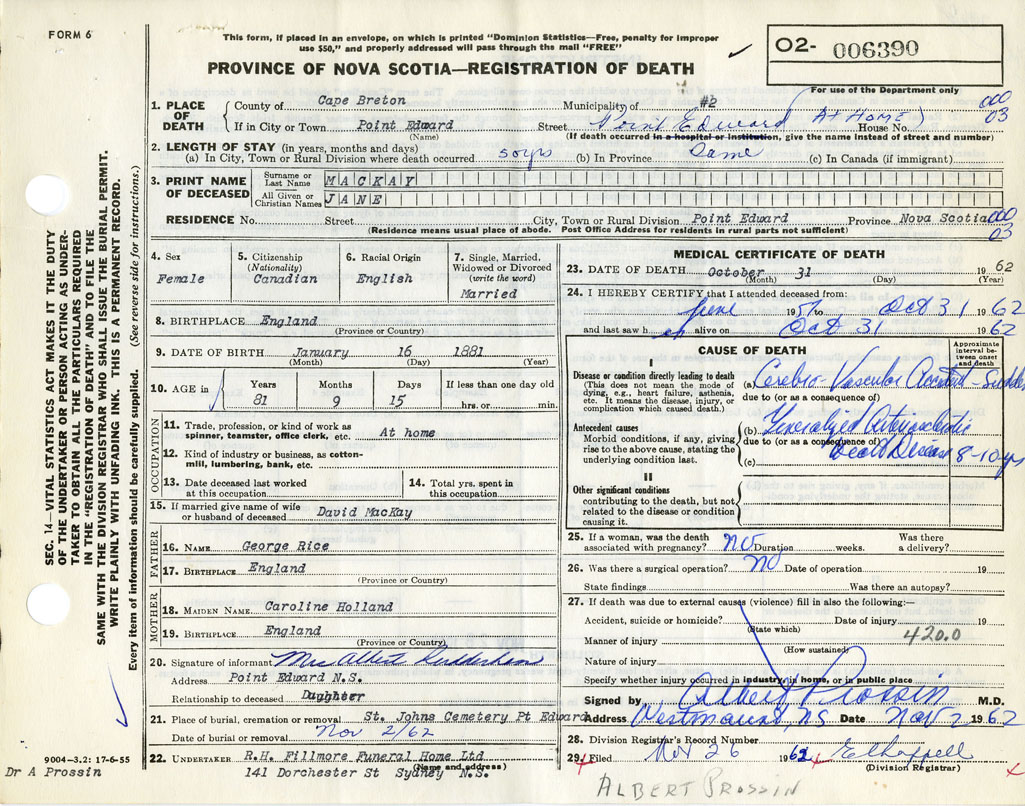 FORM 6
This form, if placed in an envelope, on which is printed "Dominion Statistics—Free, penalty for improper
use $50," and properly addressed will pass through the mail "FREE"
02- 006390
PROVINCE OF NOVA SCOTIA—REGISTRATION OF DEATH
For use of the Department only
1. PLACE OF DEATH County of Cape Breton Municipality of #2
000 03
If in City or Town Point Edward (Name) Street Point Edward House No. (AT HOME)
(If death occurred in a hospital or institution, give the name instead of street and number)
2. LENGTH OF STAY (in years, months and days)
(a) In City, Town or Rural Division where death occurred 50yrs (b) In Province Same (c) In Canada (if immigrant)
3. PRINT NAME OF DECEASED Surname or Last Name MACKAY
All Given or Christian Names JANE
RESIDENCE No. Street City, Town or Rural Division Point Edward Province Nova Scotia 000 03
(Residence means usual place of abode. Post Office Address for residents in rural parts not sufficient)
4. Sex Female
5. Citizenship (Nationality) Canadian
6. Racial Origin English
7. Single, Married, Widowed or Divorced (write the word) Married
8. BIRTHPLACE England
(Province or Country)
9. DATE OF BIRTH January 16 1881
(Month) (Day) (Year)
10. AGE in Years Months Days If less than one day old
81 9 15 hrs. or min.
OCCUPATION
11. Trade, profession, or kind of work as spinner, teamster, office clerk, etc. At home
12. Kind of industry or business, as cotton-mill, lumbering, bank, etc.
13. Date deceased last worked at this occupation
14. Total yrs. spent in this occupation
15. If married give name of wife or husband of deceased David MacKay
FATHER
16. NAME George Rice
17. BIRTHPLACE England
(Province or Country)
MOTHER
18. MAIDEN NAME Caroline Holland
19. BIRTHPLACE England
(Province or Country)
20. Signature of informant Mrs Albert
Address Point Edward N.S.
Relationship to deceased Daughter
21. Place of burial, cremation or removal St. Johns Cemetery Pt Edward
Date of burial or removal Nov 2/62
22. UNDERTAKER R.H. Fillmore Funeral Home Ltd
(Name and address)
141 Dorchester St Sydney N.S.
MEDICAL CERTIFICATE OF DEATH
23. DATE OF DEATH October 31 1962
(Month) (Day) (Year)
24. I HEREBY CERTIFY that I attended deceased from:
June 1957 to Oct 31 1962
and last saw h er alive on Oct 31 1962
CAUSE OF DEATH
Approximate interval between onset and death
I
Disease or condition directly leading to death
(This does not mean the mode of dying, e.g., heart failure, asthenia, etc. It means the disease, injury, or complication which caused death.)
(a) Cerebro-Vascular Accident - Sudden
due to (or as a consequence of)
Antecedent causes
Morbid conditions, if any, giving rise to the above cause, stating the underlying condition last.
(b) Generalized Arteriosclerotic
due to (or as a consequence of)
Heart Disease 8-10 yrs
(c)
II
Other significant conditions
contributing to the death, but not related to the disease or condition causing it.
25. If a woman, was the death associated with pregnancy? No Duration weeks. Was there a delivery?
26. Was there a surgical operation? No Date of operation 19
State findings Was there an autopsy?
27. If death was due to external causes (violence) fill in also the following:—
Accident, suicide or homicide? (State which) Date of injury 19
420.0
Manner of injury (How sustained)
Nature of injury
Specify whether injury occurred in industry, in home, or in public place
Signed by Albert Prossin M.D.
Address Westmount, NS Date Nov 2 1962
28. Division Registrar's Record Number
29. Filed Nov 26 1962 E Chappell
(Division Registrar)
ALBERT PROSSIN
SEC. 14—VITAL STATISTICS ACT MAKES IT THE DUTY
OF THE UNDERTAKER OR PERSON ACTING AS UNDER-
TAKER TO OBTAIN ALL THE PARTICULARS REQUIRED
IN THE "REGISTRATION OF DEATH" AND TO FILE THE
SAME WITH THE DIVISION REGISTRAR WHO SHALL ISSUE THE BURIAL PERMIT.
WRITE PLAINLY WITH UNFADING INK. THIS IS A PERMANENT RECORD.
Every item of information should be carefully supplied. (See reverse side for instructions.)
9004-3.2: 17-6-55
Dr A Prossin